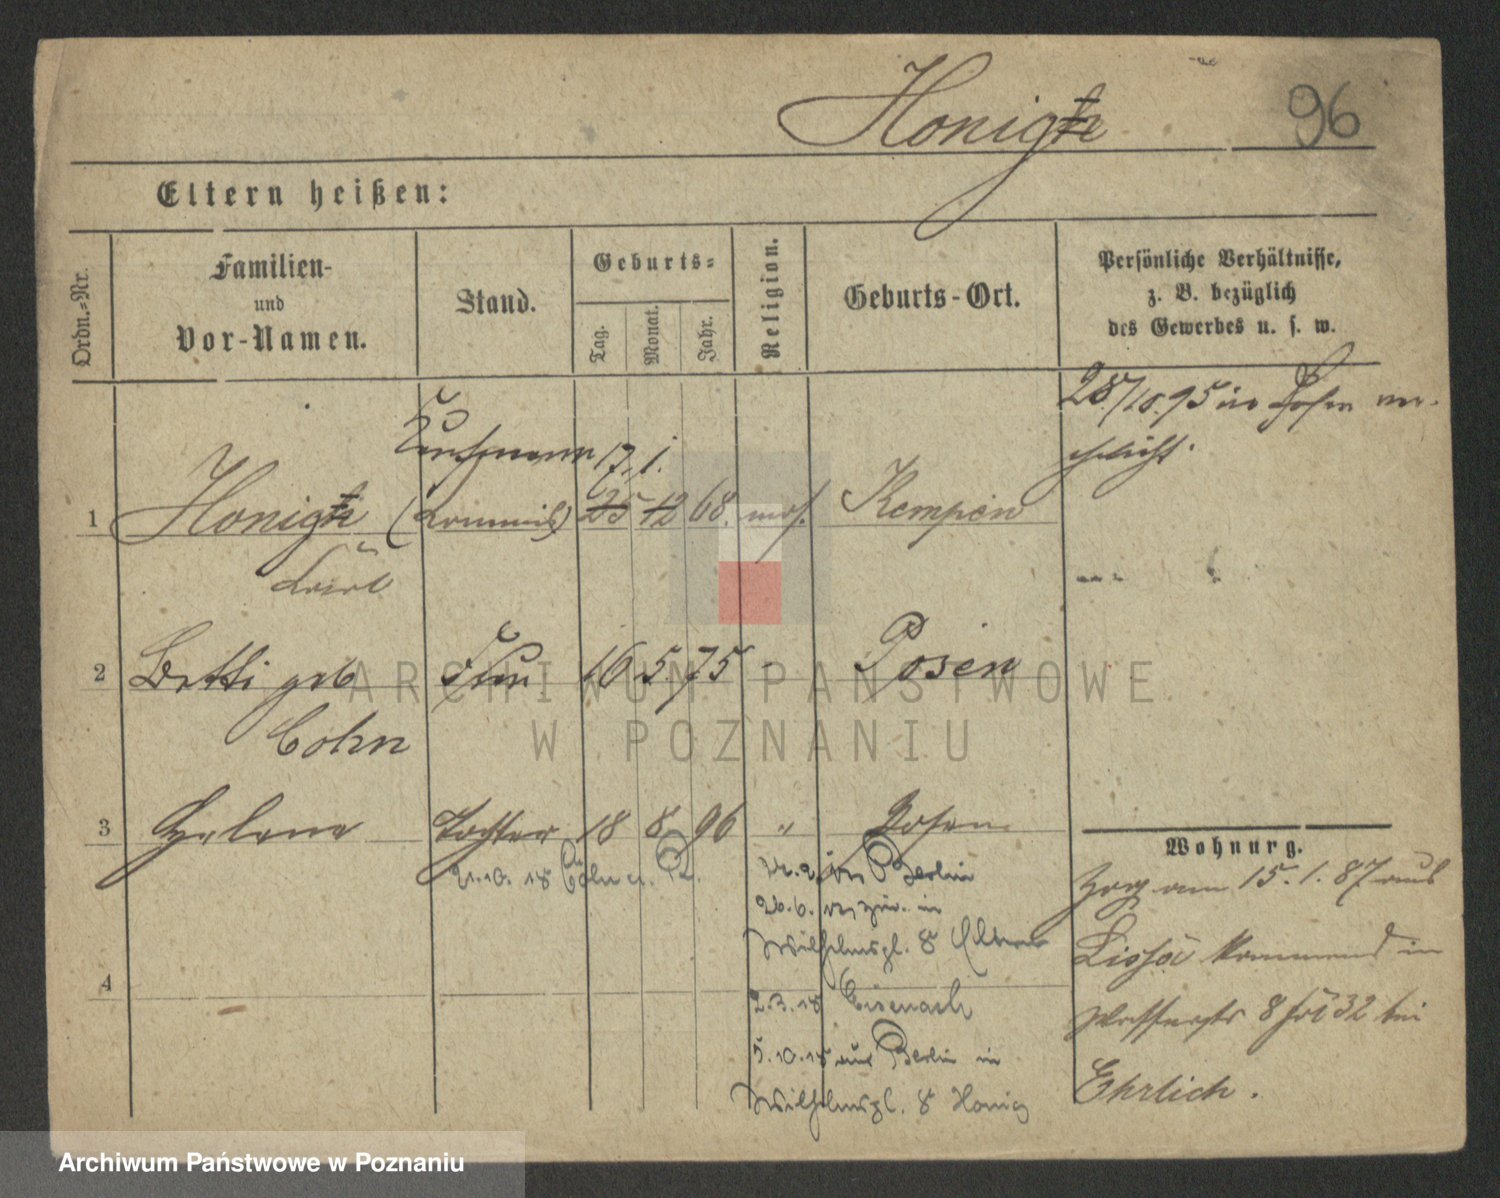 Honig
96
Eltern heißen:
Ordn.-Nr.
Familien-
und
Vor-Namen.
Stand.
Geburts-
Tag.
Monat.
Jahr.
Religion.
Geburts-Ort.
Persönliche Verhältnisse,
z. B. bezüglich
des Gewerbes u. s. w.
28/10.95 in Posen ver-
ehelicht.
Kaufmann 17. 1.
1 Honig (Commis) 25 12 68. mos. Kempen
2 Betti geb Frau 16 5. 75 - Posen
Cohn
3 Helene Tochter 18 8 96 " Posen
21.10. 18 Cöln a. R.
Berlin
26.6. in
Wilhelmspl. 8 Eltern
2.3.18 Eisenach
5.10.18 aus Berlin in
Wilhelmspl. 8 Honig
4
Wohnung.
Zog am 15. 1. 87 aus
Lissa kommend in
Wasserstr 8 bei
Ehrlich.
ARCHIWUM PAŃSTWOWE
W POZNANIU
Archiwum Państwowe w Poznaniu